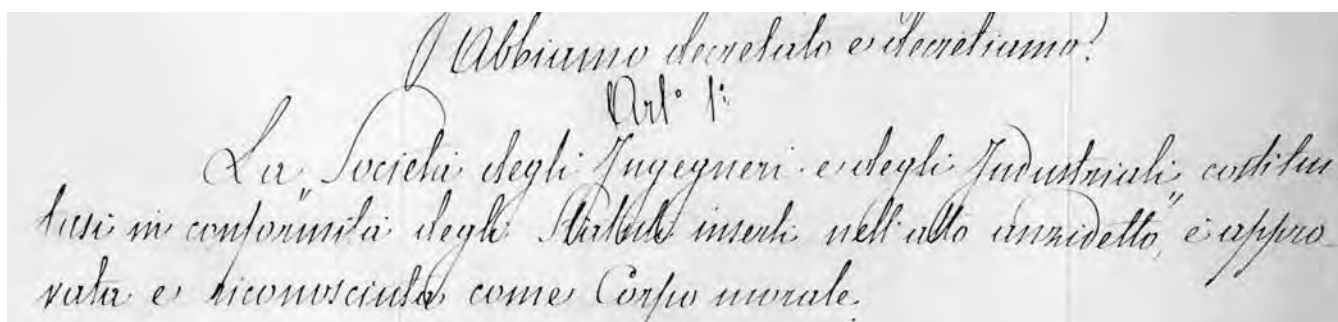 Abbiamo decretato e decretiamo:
Art° 1°:
La Società degli Ingegneri e degli Industriali, costitui
tasi in conformità degli Statuti inserti nell'atto anzidetto, è appro-
vata e riconosciuta come Corpo morale.